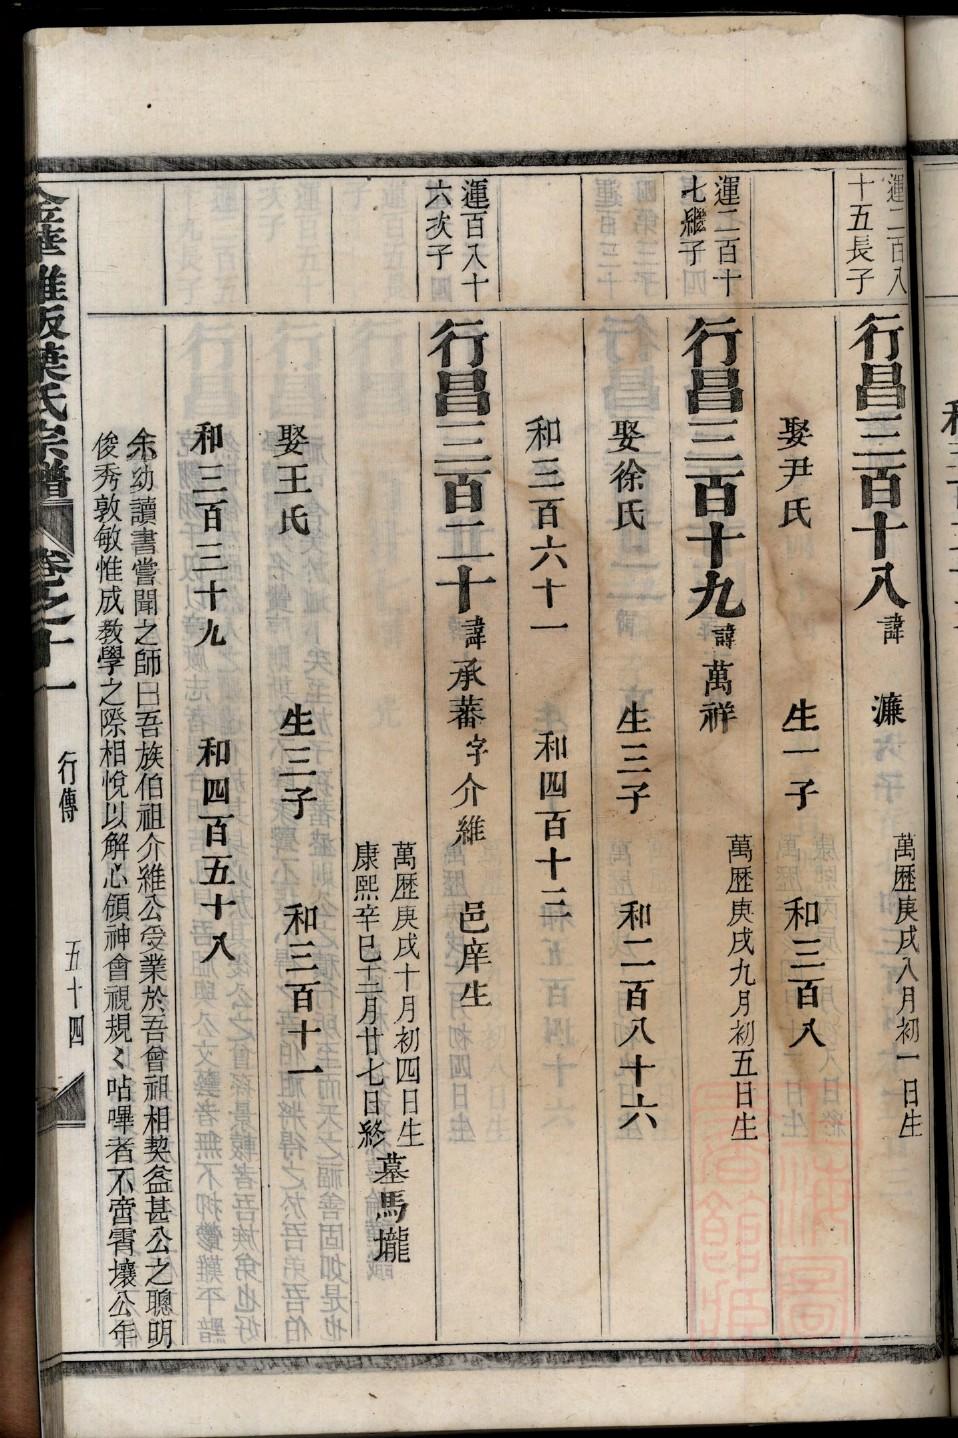 運二百八
十五長子
行昌三百十八 諱 濂 萬歷庚戌八月初一日生
娶尹氏 生一子 和三百八
運二百十
七繼子
行昌三百十九 諱萬祥 萬歷庚戌九月初五日生
娶徐氏 生三子 和二百八十六
和三百六十一 和四百十二
運百八十
六次子
行昌三百二十 諱承蕃字介維 邑庠生
萬歷庚戌十月初四日生
康熙辛巳十二月廿七日終
墓馬壠
娶王氏 生三子 和三百十一
和三百三十九 和四百五十八
余幼讀書嘗聞之師曰吾族伯祖介維公受業於吾曾祖相契益甚公之聰明
俊秀敦敏惟成教學之際相悅以解心領神會視規〻呫嗶者不啻霄壤公年
金華雅畈葉氏宗譜 卷之十一 行傳 五十四